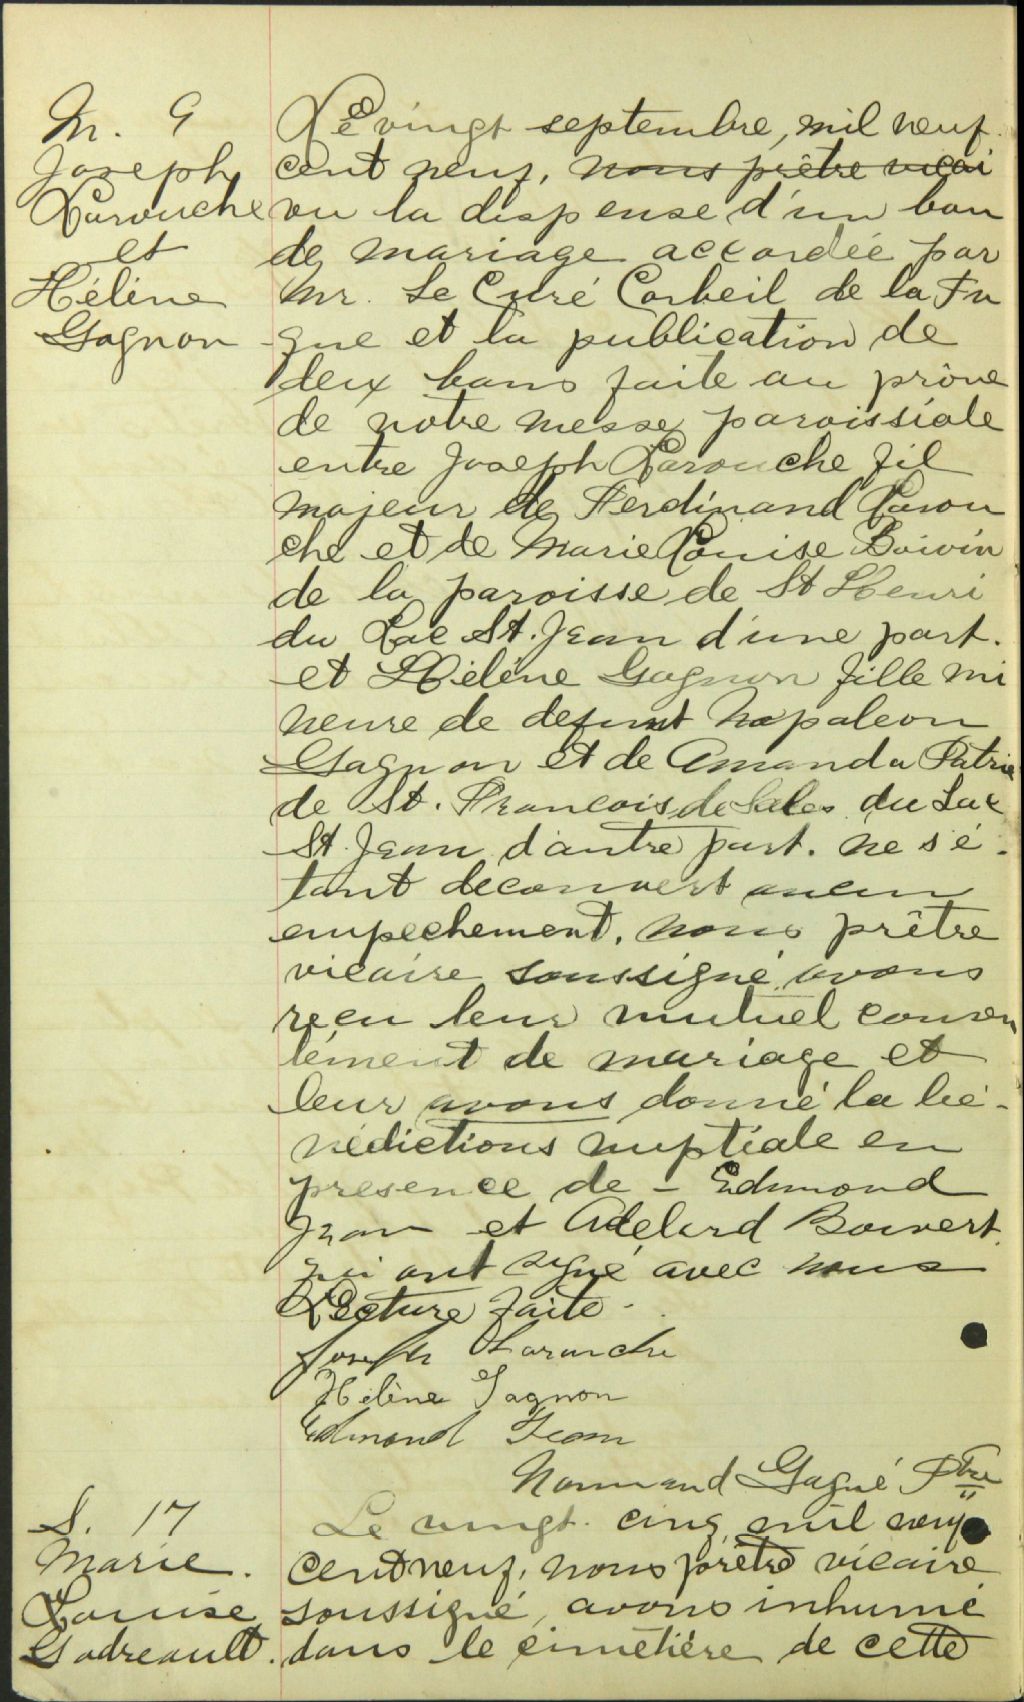 M. 9
Joseph
Larouche
et
Hélène
Gagnon
Le vingt septembre, mil neuf
cent neuf, nous prêtre vicai
vu la dispense d'un ban
de mariage accordée par
Mr. Le Curé Corbeil de la Tu
que et la publication de
deux bans faite au prône
de notre messe paroissiale
entre Joseph Larouche fil
majeur de Ferdinand Larou
che et de Marie Louise Boivin
de la paroisse de St Henri
du Lac St. Jean d'une part.
et Hélène Gagnon fille mi
neure de defunt Napoleon
Gagnon et de Amanda Patrie
de St. Francois de Sales du Lac
St. Jean d'autre part. ne s'é-
tant decouvert aucun
empechement, nous prêtre
vicaire soussigné avons
reçu leur mutuel consen
tement de mariage et
leur avons donné la bé-
nédictions nuptiale en
presence de - Edmond
Jean et Adelard Boivert
qui ont signé avec nous
Lecture faite -
Joseph Larouche
Hélène Gagnon
Edmond Jean
Normand Gagné Ptre
S. 17
Marie
Louise
Gadreault.
Le vingt cinq mil neuf
cent neuf, nous prêtre vicaire
soussigné, avons inhumé
dans le cimétière de cette